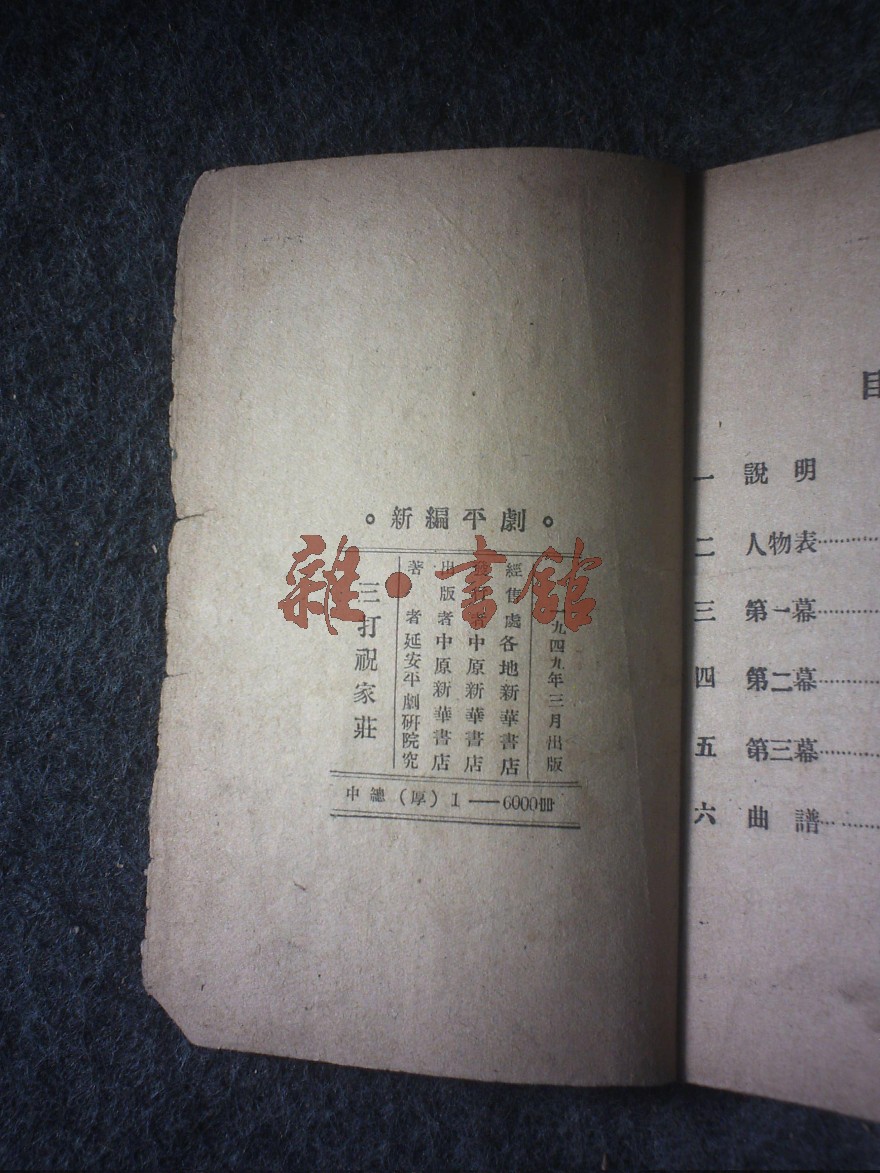 。新編平劇。
三打祝家莊
著者延安平劇研院究
出版者中原新華書店
發行者中原新華書店
經售處各地新華書店
一九四九年三月出版
中總（厚）1——6000冊
雜·書館
目
一 說明
二 人物表
三 第一幕
四 第二幕
五 第三幕
六 曲譜